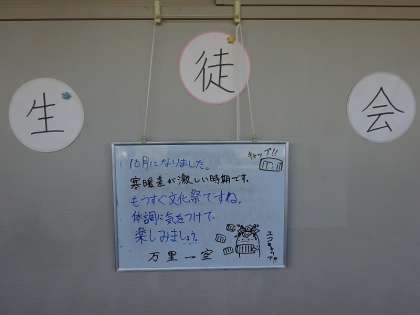 生徒会
10月になりました。
寒暖差が激しい時期です。
もうすぐ文化祭ですね。
体調に気をつけて、
楽しみましょう。
万里一空
キャップ!!
エコキャップ!!